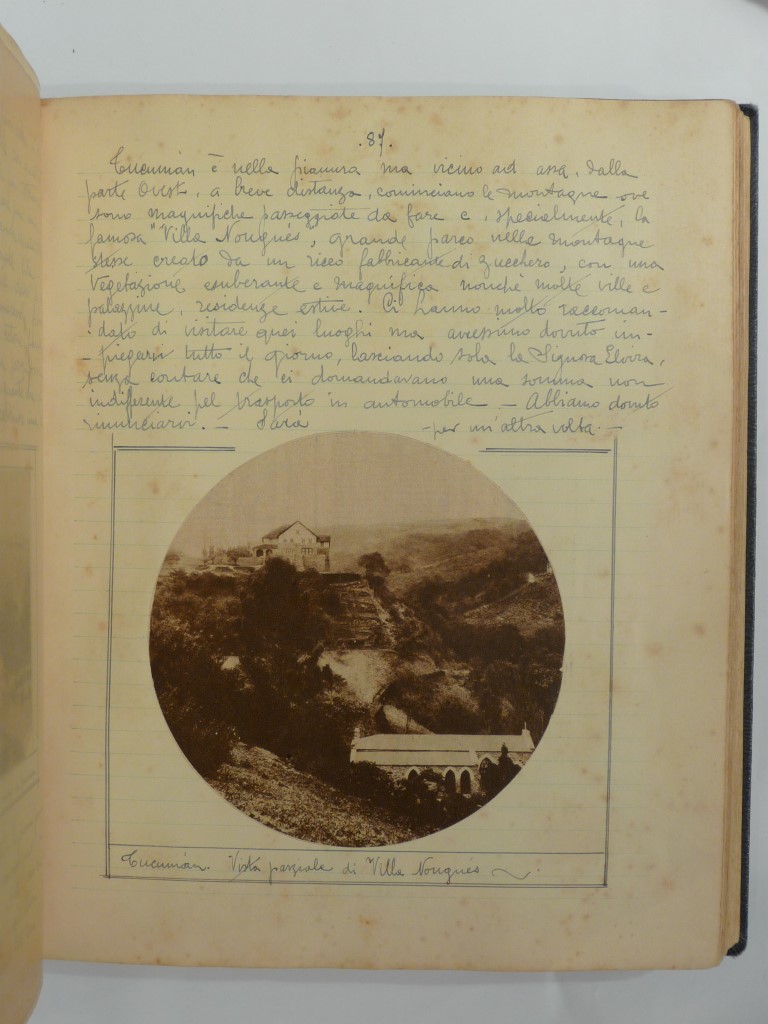 .87.
Tucumán è nella pianura ma vicino ad essa, dalla
parte Ovest, a breve distanza, cominciano le montagne ove
sono magnifiche passeggiate da fare e, specialmente, la
famosa "Villa Nougués", grande parco nelle montagne
stesse creato da un ricco fabbricante di zucchero, con una
vegetazione esuberante e magnifica nonchè molte ville e
palazzine, residenze estive. Ci hanno molto raccoman-
- dato di visitare quei luoghi ma avressimo dovuto im-
- piegarvi tutto il giorno, lasciando sola la Signora Elvira,
senza contare che ci domandavano una somma non
indifferente pel trasporto in automobile - Abbiamo dovuto
rinunciarvi. - Sarà - per un'altra volta. -
Tucumán. Vista parziale di Villa Nougués